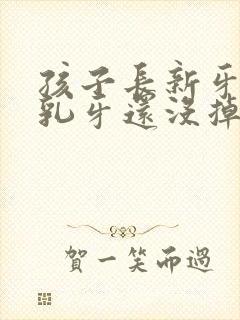 孩子長新牙
乳牙還沒掉
賀一笑而過